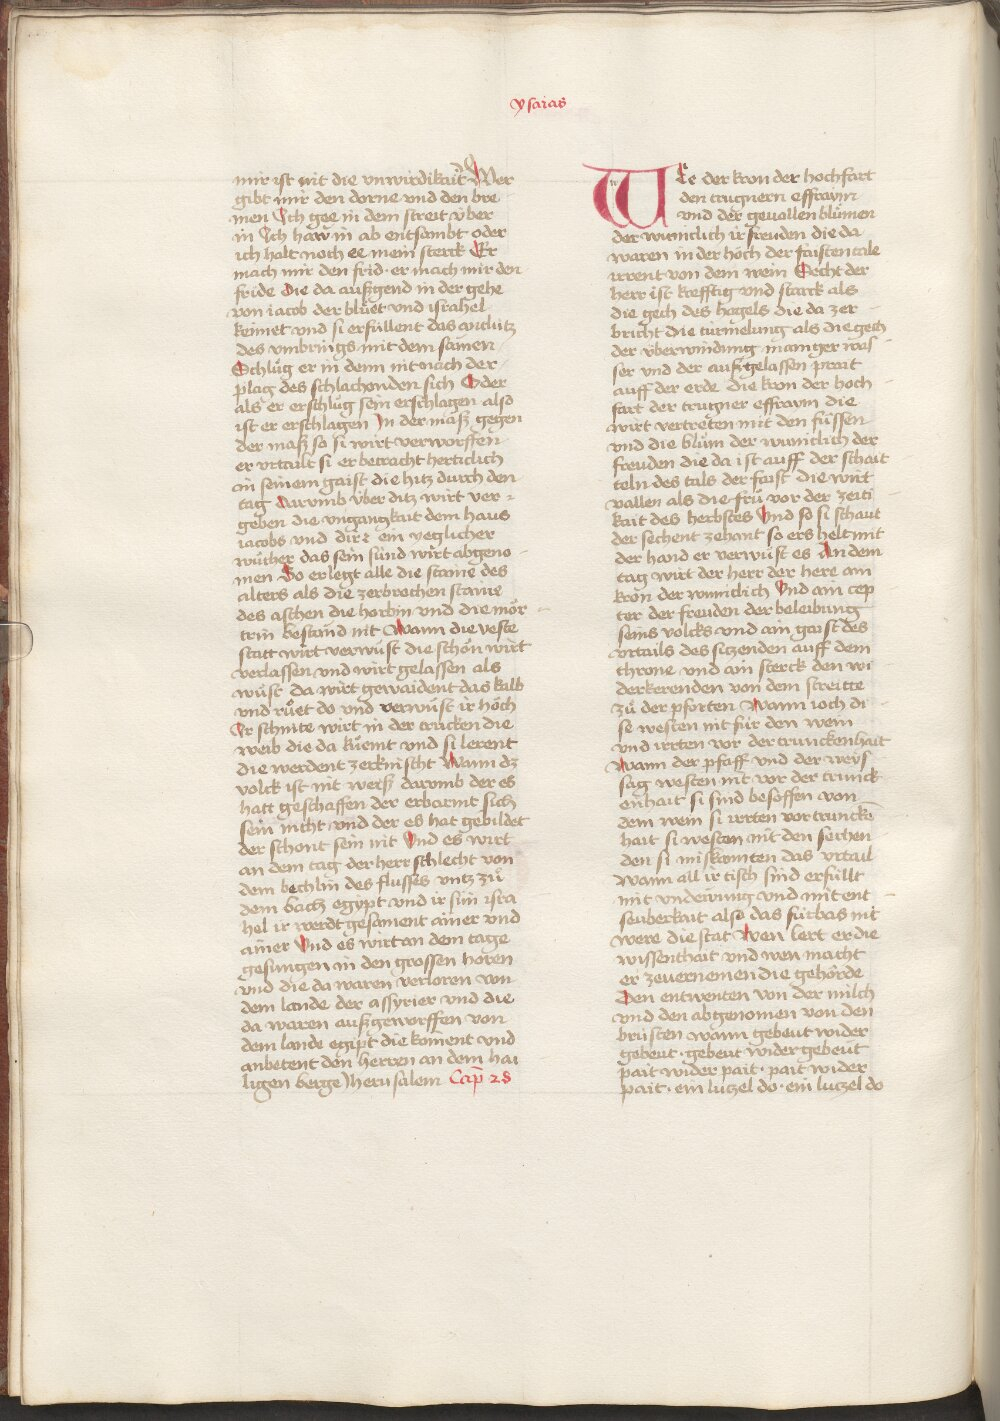 ysaias
mir ist nit die vnwirdikait Wer
gibt mir den dorne vnd den bre
men Ich gee in dem streit v̈ber
in Ich haw in ab entsambt oder
ich halt noch ee mein sterck Er
mach mir den frid · er mach mir den
fride Die da außgend in der gehe
von iacob der blüet vnd israhel
keimet vnd si erfüllent das antlütz
des vmbrings mit dem samen
Schlüg er in denn nit nach der
plag des schlachenden sich Oder
als er erschlüg sein erschlagen also
ist er erschlagen In der maß gegen
der maß so si wirt verworffen
er vrtailt si er betracht herticlich
in seinem gaist die hitz durch den
tag Darumb v̈ber ditz wirt ver-
geben die vngangkait dem haus
iacobs vnd ein yeglicher
wücher das sein sünd wirt abgeno-
men So er legt alle die staine des
alters als die zerbrochen staine
des aschen die horbin vnd die mör
trin bestand nit Wann die veste
statt wirt verwüst die schön wirt
verlassen vnd wirt gelassen als
wüst da wirt gewaident das kalb
vnd rüet do vnd verwüst ir höch
Ir schnite wirt in der trucken die
weib die da küemt vnd si lerent
die werdent zerknischt Wann dz
volck ist nit weiß darumb der es
hatt geschaffen der erbarmt sich
sein nicht vnd der es hat gebildet
der schont sein nit Vnd es wirt
an dem tag der herr schlecht von
dem bechlin des flusses vntz zů
dem bach egypt vnd ir sün isra
hel ir werdt gesament ainer vnd
ainer Vnd es wirt an dem tage
gesungen in den grossen horen
vnd die da waren verloren von
dem lande der assyrier vnd die
da waren außgeworffen von
dem lande egipt die koment vnd
anbetent den herren an dem hai
ligen berge Jherusalem Cap̄ 28
WEe der kron der hochfart
den trugnern effraym
vnd der geuallen blümen
der wunnclich ir freuden die da
waren in der höch der faisten tale
irrent von dem wein Secht der
herr ist krefftig vnd starck als
die gech des hagels die da zer
bricht die türmelung als die gech
der v̈berwindung mainger was
ser vnd der außgelassen prait
auff der erde die kron der hoch
fart der trugner effraym die
wirt vertreten mit den füssen
vnd die blům der wunnclich der
freuden die da ist auff der schait
teln des tals der faist die wirt
vallen als die frü vor der zeiti
kait des herbstes Vnd so si schaut
der sechent zehant so ers helt mit
der hand er verwüst es An dem
tag wirt der herr der here ain
kron der wunnclich Vnd ain cep
ter der freuden der beleibung
seins volcks vnd ain gaist des
vrtails des sitzenden auff dem
throne vnd ain sterck den wi
derkerenden von dem streitte
zů der pforten Wann ioch di
se westen nit für den wein
vnd irrten vor der trunckenhait
Wann der pfaff vnd der weys
sag westen nit vor der trunck
enhait si sind besoffen von
dem wein si irrten vor truncke
hait si westen nit den sechen
den si miskannten das vrtail
Wann all ir tisch sind erfüllt
mit vndeüung vnd mit ent
seuberkait also das fürbas nit
were die stat Wen lert er die
wissenthait vnd wen macht
er zeuernemen die gehörde
Den entwenten von der milch
vnd den abgenomen von den
brüsten wann gebeut wider
gebeut · gebeut wider gebeüt
pait wider pait · pait wider
pait · ein lützel do · ein lutzel do